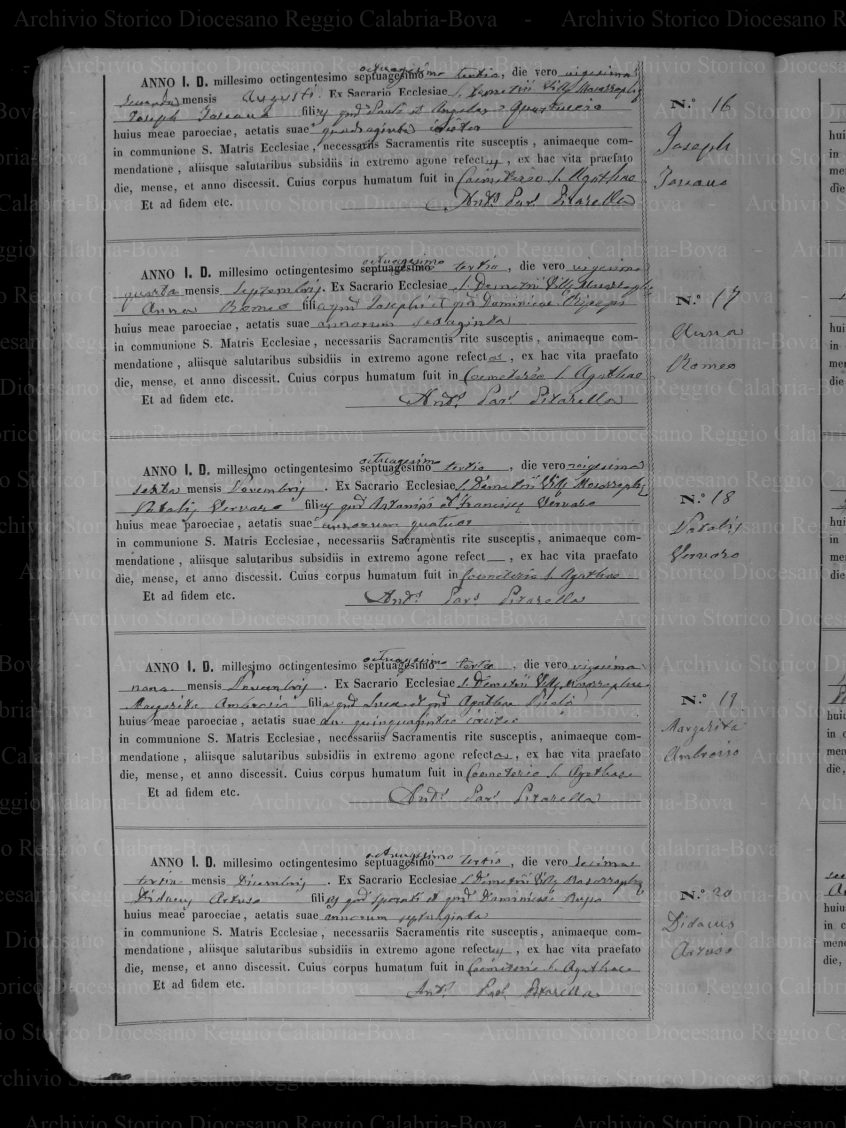 Archivio Storico Diocesano Reggio Calabria-Bova - Archivio Storico Diocesano Reggio
octuagesimo
ANNO I. D. millesimo octingentesimo septuagesimo tertio, die vero vigesima
secunda mensis Augusti. Ex Sacrario Ecclesiae S. Demetrii
Joseph filius qnd Pauli et Angelae
huius meae paroeciae, aetatis suae quadraginta
in communione S. Matris Ecclesiae, necessariis Sacramentis rite susceptis, animaeque com-
mendatione, aliisque salutaribus subsidiis in extremo agone refectus, ex hac vita praefato
die, mense, et anno discessit. Cuius corpus humatum fuit in Coemeterio S. Agathae
Et ad fidem etc. Ant.s Par.s Pitarella
N.º 16
Joseph
octuagesimo
ANNO I. D. millesimo octingentesimo septuagesimo tertio, die vero vigesima
quarta mensis Septembris. Ex Sacrario Ecclesiae S. Demetrii
Anna Romeo filia qnd Josephi et qnd Dominicae
huius meae paroeciae, aetatis suae annorum sexaginta
in communione S. Matris Ecclesiae, necessariis Sacramentis rite susceptis, animaeque com-
mendatione, aliisque salutaribus subsidiis in extremo agone refectas, ex hac vita praefato
die, mense, et anno discessit. Cuius corpus humatum fuit in Coemeterio S. Agathae
Et ad fidem etc. Ant.s Par.s Pitarella
N.º 17
Anna
Romeo
octuagesimo
ANNO I. D. millesimo octingentesimo septuagesimo tertio, die vero vigesima
sexta mensis Novembris. Ex Sacrario Ecclesiae S. Demetrii
Natalis filius qnd et Francisca
huius meae paroeciae, aetatis suae annorum quatuor
in communione S. Matris Ecclesiae, necessariis Sacramentis rite susceptis, animaeque com-
mendatione, aliisque salutaribus subsidiis in extremo agone refect , ex hac vita praefato
die, mense, et anno discessit. Cuius corpus humatum fuit in Coemeterio S. Agathae
Et ad fidem etc. Ant.s Par.s Pitarella
N.º 18
Natalis
octuagesimo
ANNO I. D. millesimo octingentesimo septuagesimo tertio, die vero vigesima
nona mensis Novembris. Ex Sacrario Ecclesiae S. Demetrii
Margarita Ambrosio filia qnd Lucae et qnd Agathae
huius meae paroeciae, aetatis suae an. quinquaginta circiter
in communione S. Matris Ecclesiae, necessariis Sacramentis rite susceptis, animaeque com-
mendatione, aliisque salutaribus subsidiis in extremo agone refectas, ex hac vita praefato
die, mense, et anno discessit. Cuius corpus humatum fuit in Coemeterio S. Agathae
Et ad fidem etc. Ant.s Par.s Pitarella
N.º 19
Margarita
Ambrosio
octuagesimo
ANNO I. D. millesimo octingentesimo septuagesimo tertio, die vero decima
tertia mensis Decembris. Ex Sacrario Ecclesiae S. Demetrii
Didacus Artuso filius qnd et qnd Dominicae
huius meae paroeciae, aetatis suae annorum septuaginta
in communione S. Matris Ecclesiae, necessariis Sacramentis rite susceptis, animaeque com-
mendatione, aliisque salutaribus subsidiis in extremo agone refectus, ex hac vita praefato
die, mense, et anno discessit. Cuius corpus humatum fuit in Coemeterio S. Agathae
Et ad fidem etc. Ant.s Par.s Pitarella
N.º 20
Didacus
Artuso